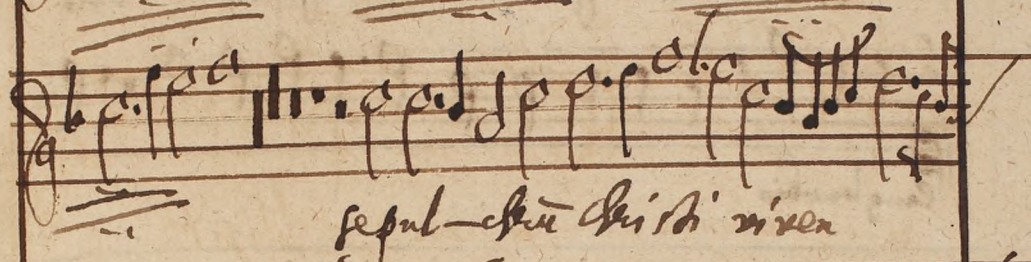 sepul-chrū christi viven